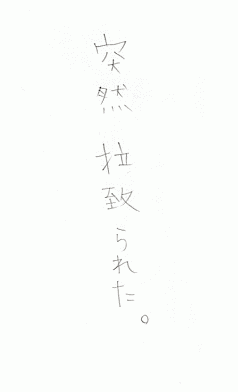 突然 拉致られた。